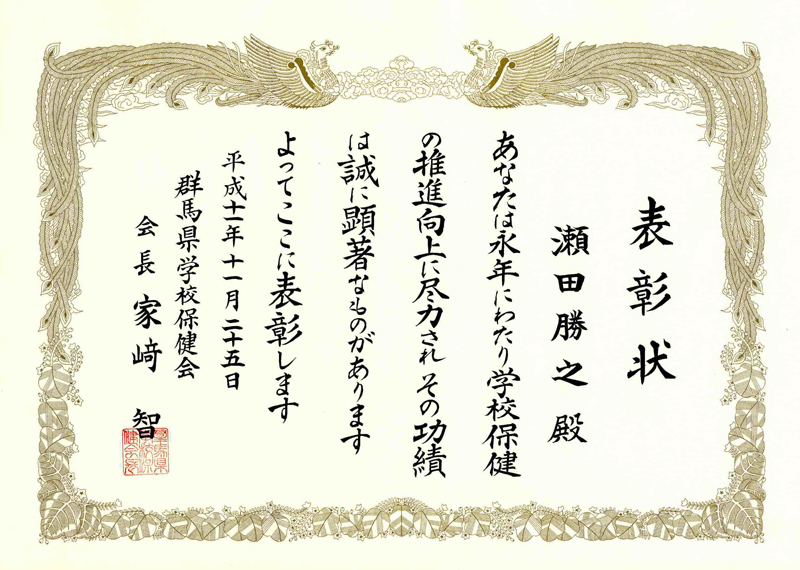 表彰状
瀬田勝之 殿
あなたは永年にわたり学校保健
の推進向上に尽力され その功績
は誠に顕著なものがあります
よってここに表彰します
平成十一年十一月二十五日
群馬県学校保健会
会長 家﨑 智